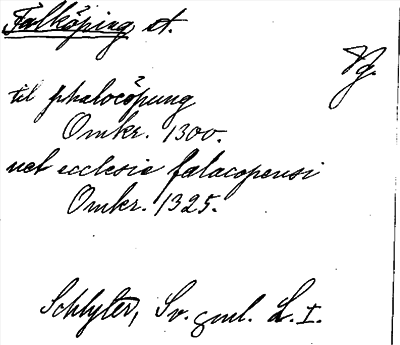 Falköping st.
Vg.
til phalocöpung
Omkr. 1300.
nec ecclesie falacopensi
Omkr. 1325.
Schlyter, Sv. gml. L. I.